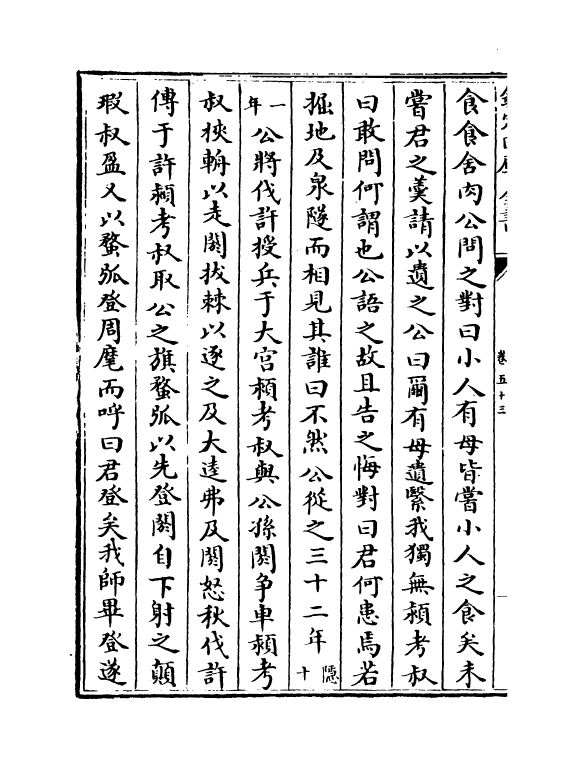 欽定四庫全書
卷五十三
食食舍肉公問之對曰小人有母皆嘗小人之食矣未
嘗君之羮請以遺之公曰爾有母遺繄我獨無潁考叔
曰敢問何謂也公語之故且告之悔對曰君何患焉若
掘地及泉隧而相見其誰曰不然公從之三十二年隱十
一年公將伐許授兵于大宮潁考叔與公孫閼争車潁考
叔挾輈以走閼拔棘以逐之及大逵弗及閼怒秋伐許
傅于許潁考叔取公之旗蝥弧以先登閼自下射之顛
瑕叔盈又以蝥弧登周麾而呼曰君登矣我師畢登遂